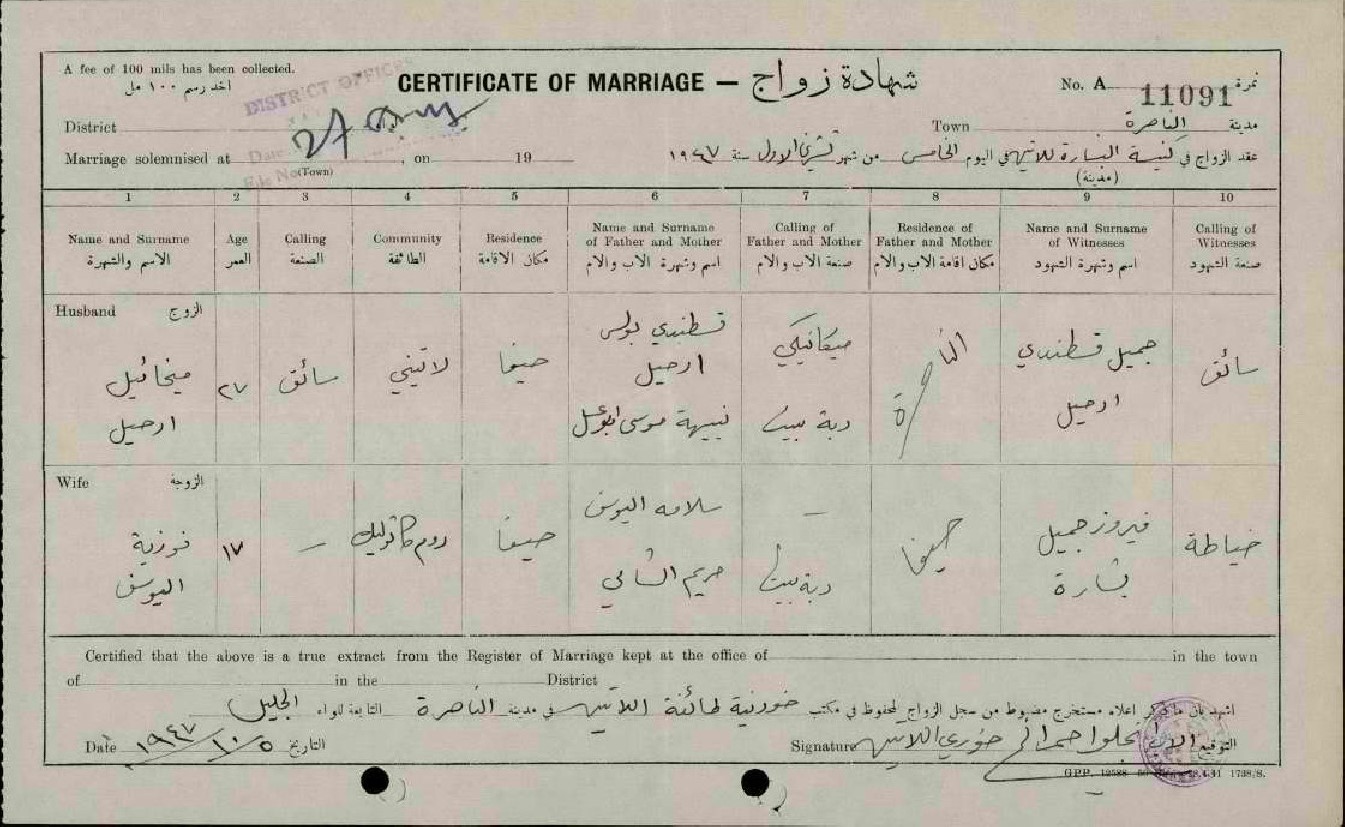 A fee of 100 mils has been collected.
اخذ رسم ١٠٠ مل
DISTRICT OFFICE
CERTIFICATE OF MARRIAGE — شهادة زواج
No. A 11091 نمرة
District
Town الناصرة مدينة
Marriage solemnised at , on 19
(Town)
Date
File No.
27
عقد الزواج في كنيسة البشارة للاتين في اليوم الخامس من شهر تشرين الاول سنة ١٩٤٧
(مدينة)
1 2 3 4 5 6 7 8 9 10
Name and Surname
الاسم والشهرة
Age
العمر
Calling
الصنعة
Community
الطائفة
Residence
مكان الاقامة
Name and Surname
of Father and Mother
اسم وشهرة الاب والام
Calling of
Father and Mother
صنعة الاب والام
Residence of
Father and Mother
مكان اقامة الاب والام
Name and Surname
of Witnesses
اسم وشهرة الشهود
Calling of
Witnesses
صنعة الشهود
Husband الزوج
ميخائيل
ارحيل
٢٧
سائق
لاتيني
حيفا
قسطندي بولس
ارحيل
نبيهة موسى ابو عسل
ميكانيكي
ربة بيت
الناصرة
جميل قسطندي
ارحيل
سائق
Wife الزوجة
فوزية
اليوسف
١٧
—
روم كاثوليك
حيفا
سلامه اليوسف
مريم الشالي
—
ربة بيت
حيفا
فيروز جميل
بشارة
خياطة
Certified that the above is a true extract from the Register of Marriage kept at the office of in the town
of in the District
اشهد بان ما ذكر اعلاه مستخرج مضبوط من سجل الزواج المحفوظ في مكتب خورنية طائفة اللاتين في مدينة الناصرة التابعة للواء الجليل
Date ١٩٤٧/١٠/٥ التاريخ
Signature الاب خوري اللاتين التوقيع
G.P.P. 12588 1738/S.